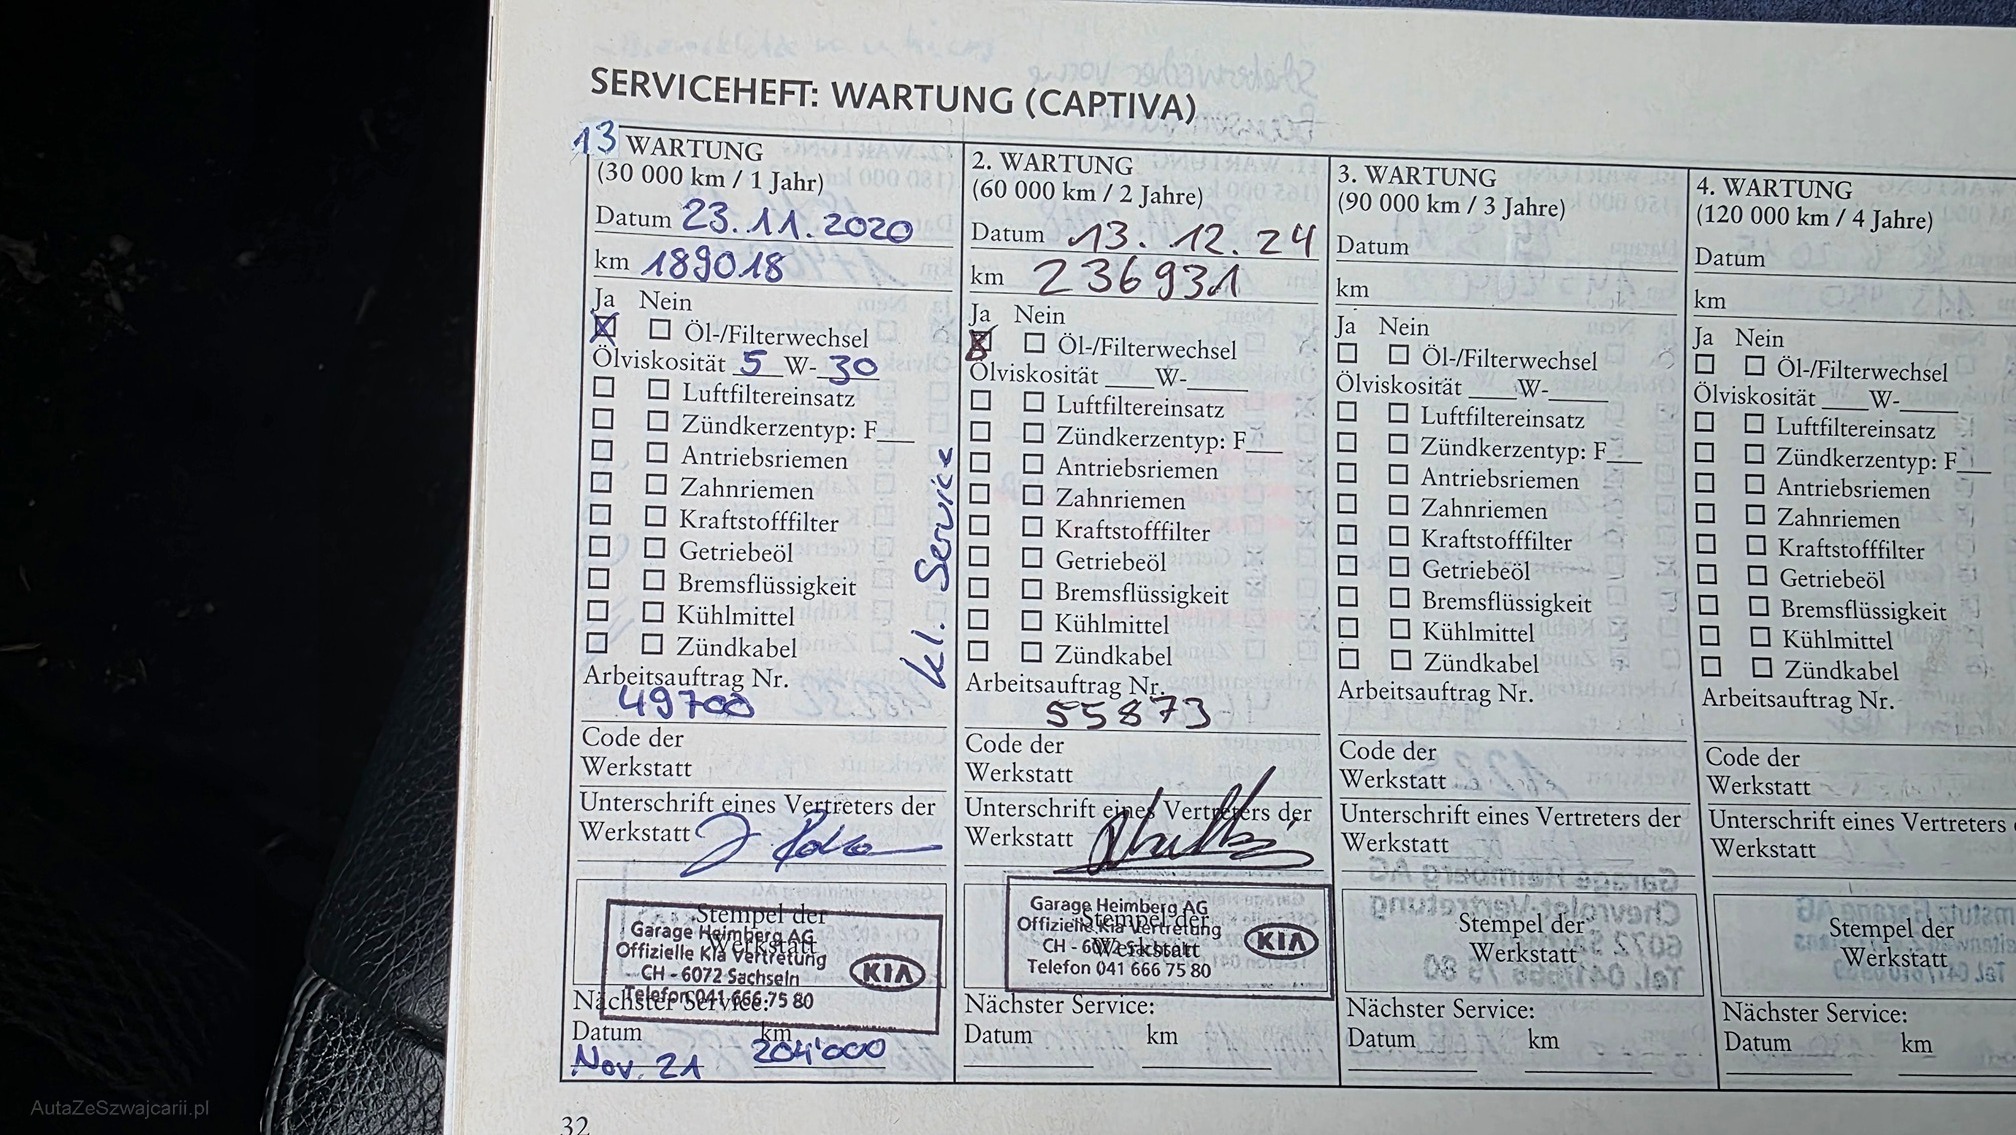 SERVICEHEFT: WARTUNG (CAPTIVA)
13 WARTUNG
(30 000 km / 1 Jahr)
Datum 23.11.2020
km 189018
Ja Nein
Öl-/Filterwechsel
Ölviskosität 5 W-30
Luftfiltereinsatz
Zündkerzentyp: F___
Antriebsriemen
Zahnriemen
Kraftstofffilter
Getriebeöl
Bremsflüssigkeit
Kühlmittel
Zündkabel
kl. Service
Arbeitsauftrag Nr.
49700
Code der
Werkstatt
Unterschrift eines Vertreters der
Werkstatt
Stempel der
Werkstatt
Garage Heimberg AG
Offizielle Kia Vertretung
CH - 6072 Sachseln
Telefon 041 666 75 80
KIA
Nächster Service:
Datum km
Nov. 21 204'000
2. WARTUNG
(60 000 km / 2 Jahre)
Datum 13.12.24
km 236931
Ja Nein
Öl-/Filterwechsel
Ölviskosität ___W-___
Luftfiltereinsatz
Zündkerzentyp: F___
Antriebsriemen
Zahnriemen
Kraftstofffilter
Getriebeöl
Bremsflüssigkeit
Kühlmittel
Zündkabel
Arbeitsauftrag Nr.
55873
Code der
Werkstatt
Unterschrift eines Vertreters der
Werkstatt
Stempel der
Werkstatt
Garage Heimberg AG
Offizielle Kia Vertretung
CH - 6072 Sachseln
Telefon 041 666 75 80
KIA
Nächster Service:
Datum km
3. WARTUNG
(90 000 km / 3 Jahre)
Datum
km
Ja Nein
Öl-/Filterwechsel
Ölviskosität ___W-___
Luftfiltereinsatz
Zündkerzentyp: F___
Antriebsriemen
Zahnriemen
Kraftstofffilter
Getriebeöl
Bremsflüssigkeit
Kühlmittel
Zündkabel
Arbeitsauftrag Nr.
Code der
Werkstatt
Unterschrift eines Vertreters der
Werkstatt
Stempel der
Werkstatt
Nächster Service:
Datum km
4. WARTUNG
(120 000 km / 4 Jahre)
Datum
km
Ja Nein
Öl-/Filterwechsel
Ölviskosität ___W-___
Luftfiltereinsatz
Zündkerzentyp: F___
Antriebsriemen
Zahnriemen
Kraftstofffilter
Getriebeöl
Bremsflüssigkeit
Kühlmittel
Zündkabel
Arbeitsauftrag Nr.
Code der
Werkstatt
Unterschrift eines Vertreters
Werkstatt
Stempel der
Werkstatt
Nächster Service:
Datum km
32
AutaZeSzwajcarii.pl